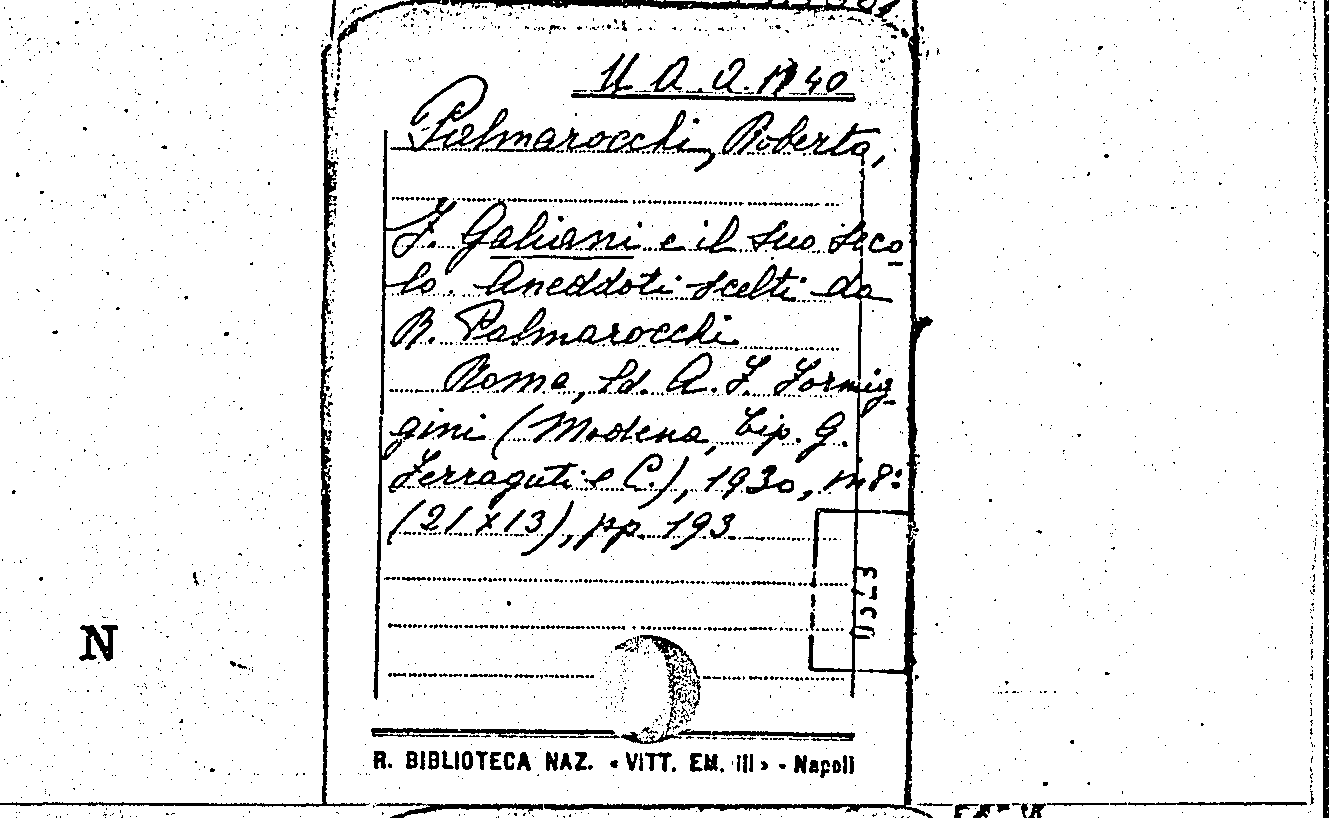 U. A. A. 1940
Palmarocchi, Roberto,
F. Galiani e il suo seco-
lo. Aneddoti scelti da
R. Palmarocchi
Roma, Ed. A. F. Formig-
gini (Modena, tip. G.
Ferraguti e C.), 1930, in 8°
(21 x 13), pp. 193
N
R. BIBLIOTECA NAZ. « VITT. EM. III » - Napoli